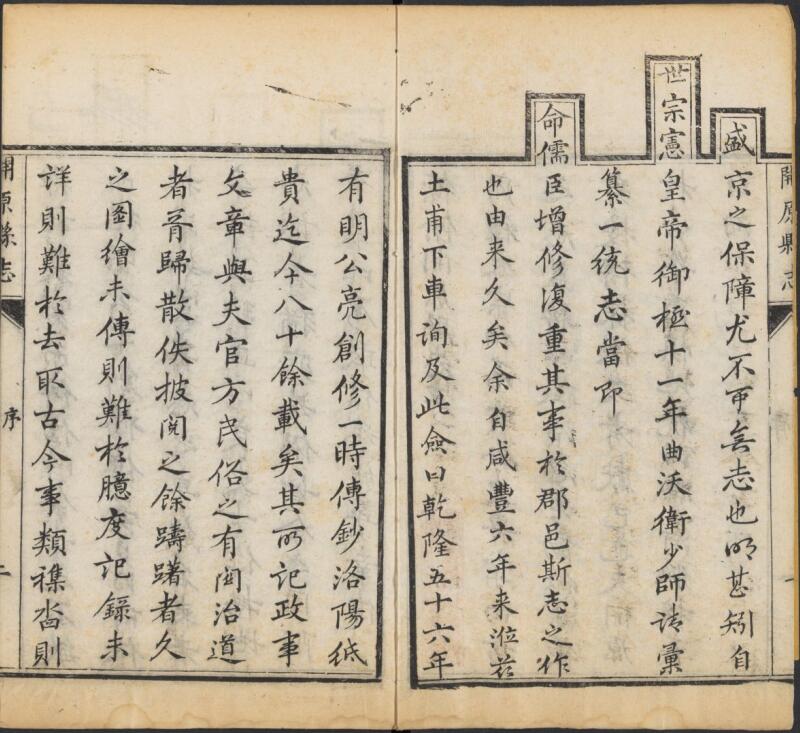 開原縣志
盛京之保障尤不可無志也明甚矧自
世宗憲皇帝御極十一年曲沃衛少師請彙
纂一統志當即
命儒臣增修復重其事於郡邑斯志之作
也由来久矣余自咸豐六年来涖茲
土甫下車詢及此僉曰乾隆五十六年
有明公亮創修一時傳鈔洛陽紙
貴迄今八十餘載矣其所記政事
文章與夫官方民俗之有関治道
者胥歸散佚披閱之餘躊躇者久
之圖繪未傳則難於臆度記錄未
詳則難於去取古今事類襍畓則
開原縣志
序
二